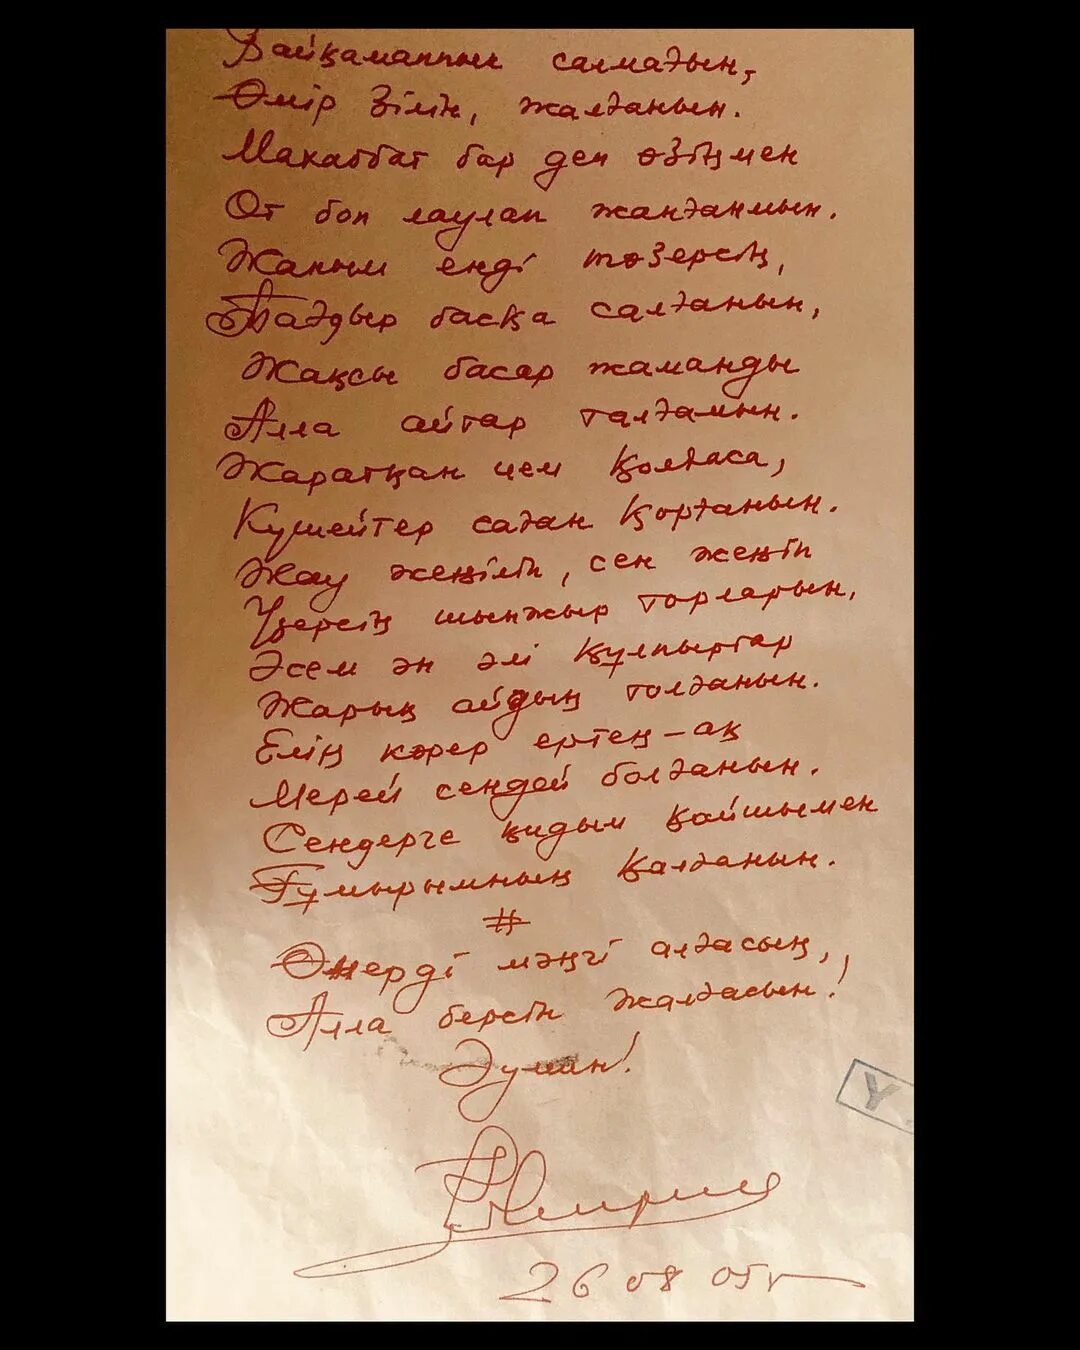 Байқамаппын салмадын,
Өмір Зілін, жалғанын.
Махаббат бар деп өзіңмен
От боп лаулап жанғанмын.
Жаным енді төзерсің,
Тағдыр басқа салғанын,
Жақсы басар жаманды
Алла айтар талғамын.
Жаратқан ием қолдаса,
Күшейтер саған қорғанын.
Жау жеңіліп, сен жеңіп
Үзерсің шынжыр торларын,
Әсем ән әлі құлпыртар
Жарық айдың толғанын.
Елің көрер ертең-ақ
Мерей сендей болғанын.
Сендерге қидым қайшымен
Ғұмырымның қалғанын.
#
Өнерді мәңгі алғасың,
Алла берсін жалғасын!
Әумин!
26 08 05г
Y